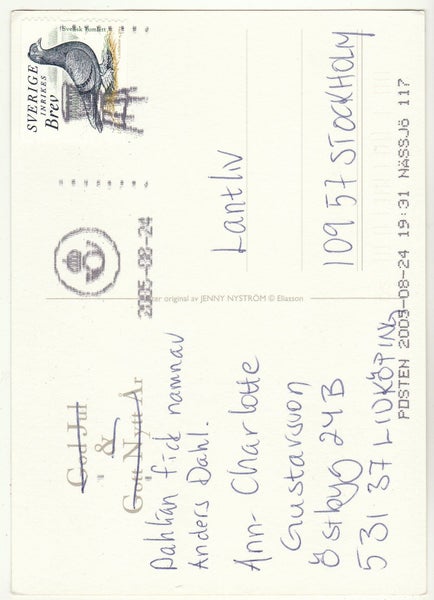 God Jul
&
Gott Nytt År
Dahlian fick namnav
Anders Dahl.
Ann-Charlotte
Gustavsson
Östbyg 24B
531 37 LIDKÖPING
ter original av JENNY NYSTRÖM © Eliasson
SVERIGE
INRIKES
Brev
Svensk
2005-08-24
Lantliv
109 57 STOCKHOLM
POSTEN 2005-08-24 19:31 NÄSSJÖ 117